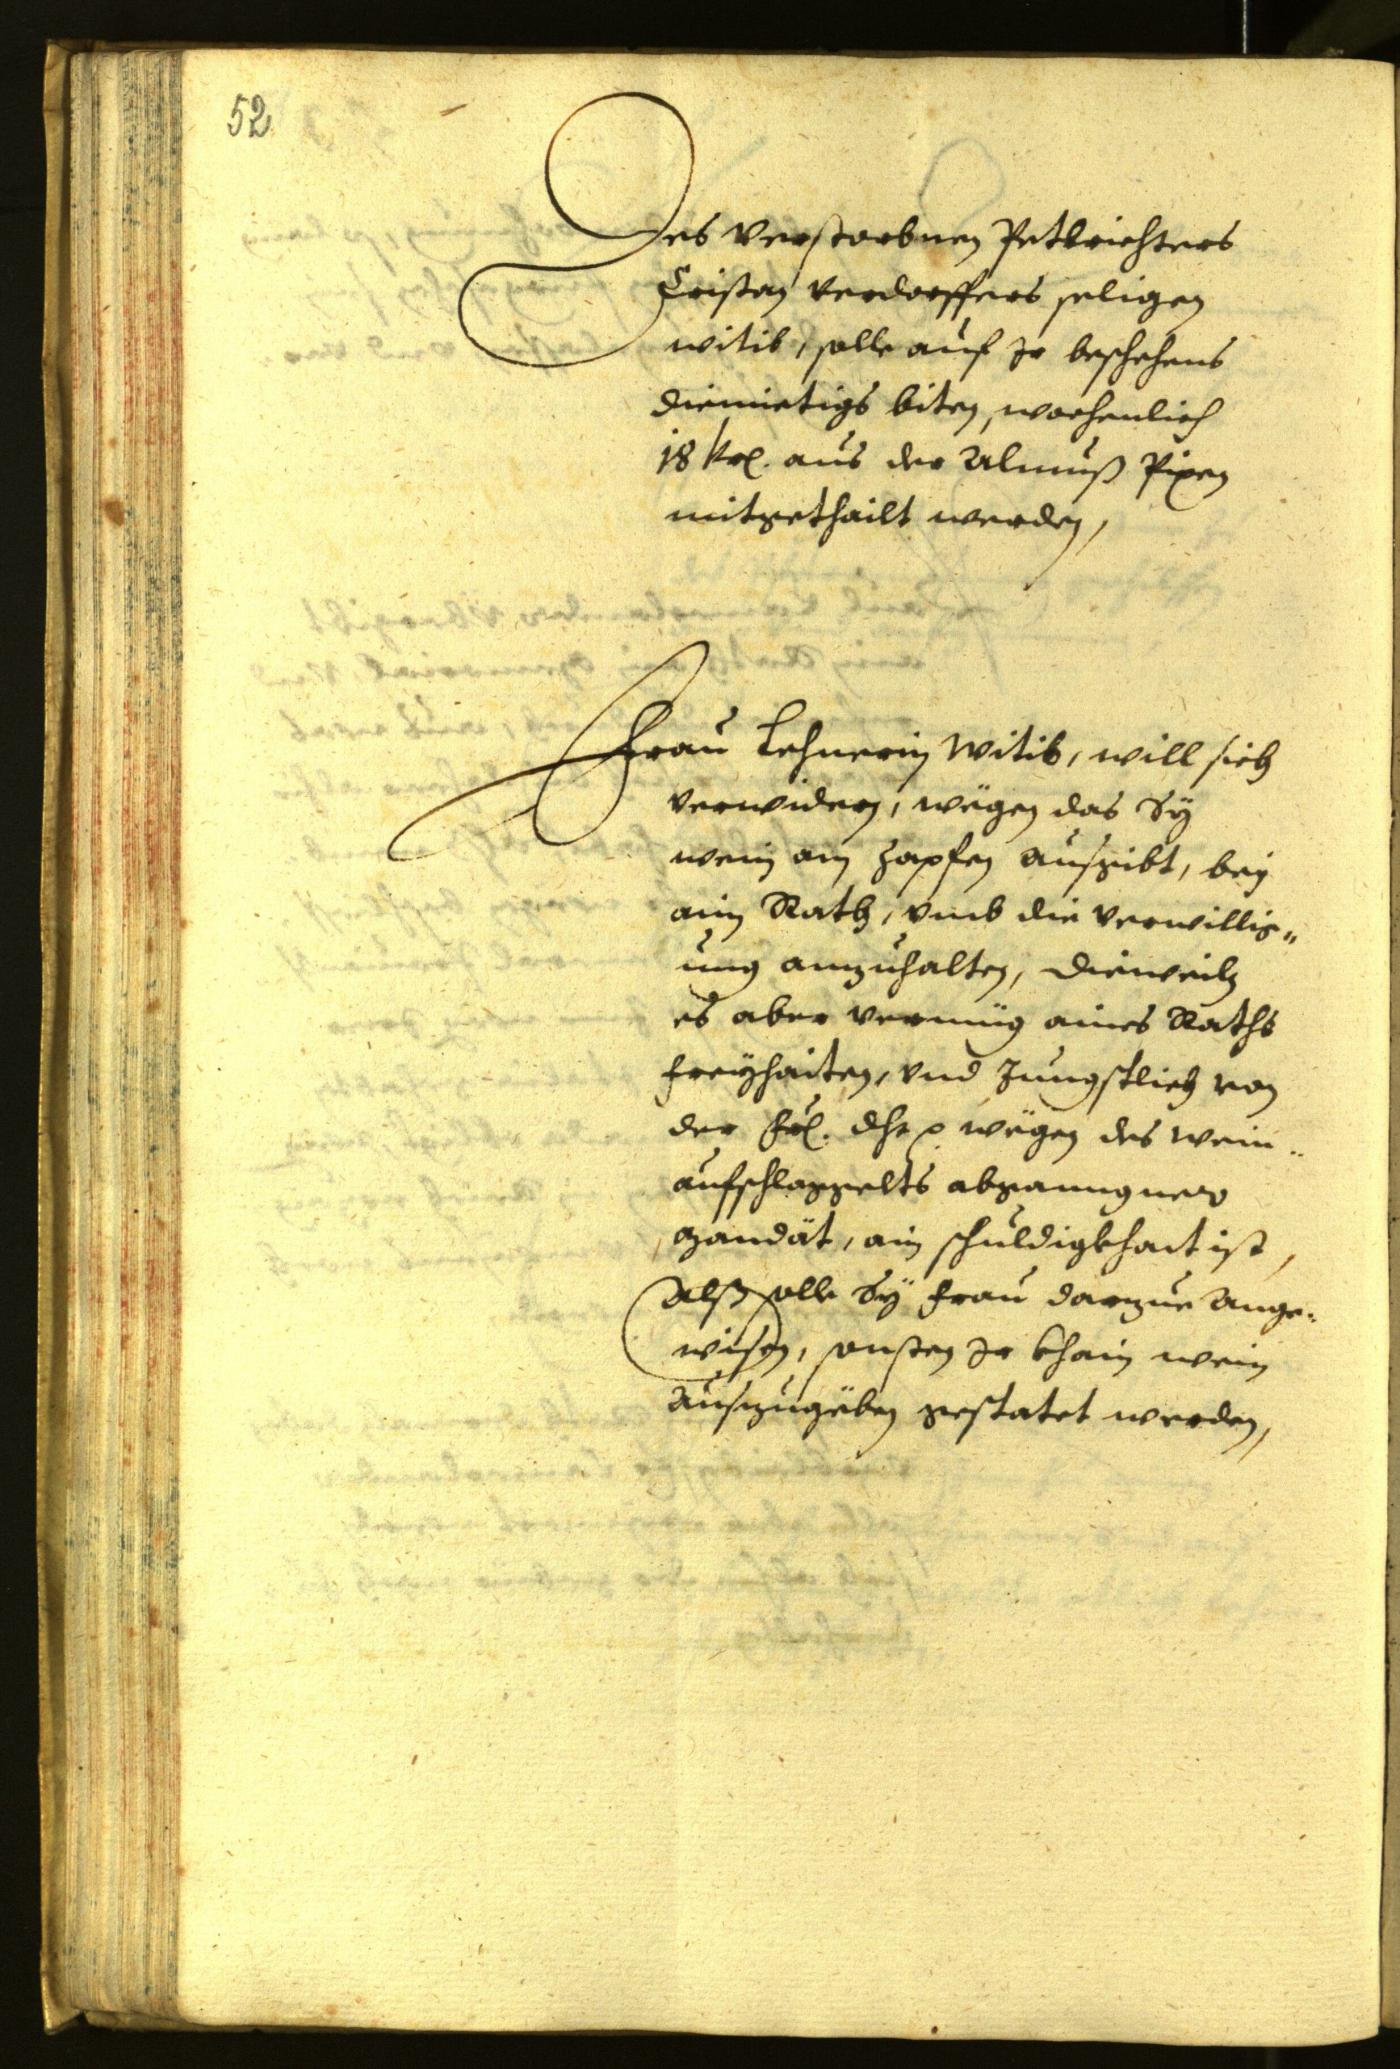 52
Des verstorbnen Petlrichters
Cristan Verdorffers seligen
witib, solle auf Ir beschehens
diemietigs biten, wochenlich
18 kr. aus der Almuß Pixen
mitgethailt werden,
Frau Lehnerin Witib, will sich
verwidern, wëgen das Sÿ
wein am Zapfen ausgibt, bey
aim Rath, vmb die verwillig„
ung anzuhalten, dieweiln
es aber vermüg aines Raths
freÿhaiten, vnd Jungstlich von
der frl. dht. wëgen des wein„
aufschlaggelts abganngner
Mandät, ain schuldigkhait ist,
Alß solle Sÿ frau darzue Ange„
wisen, sonsten Ir khain wein
Auszugëben gestatet werden,